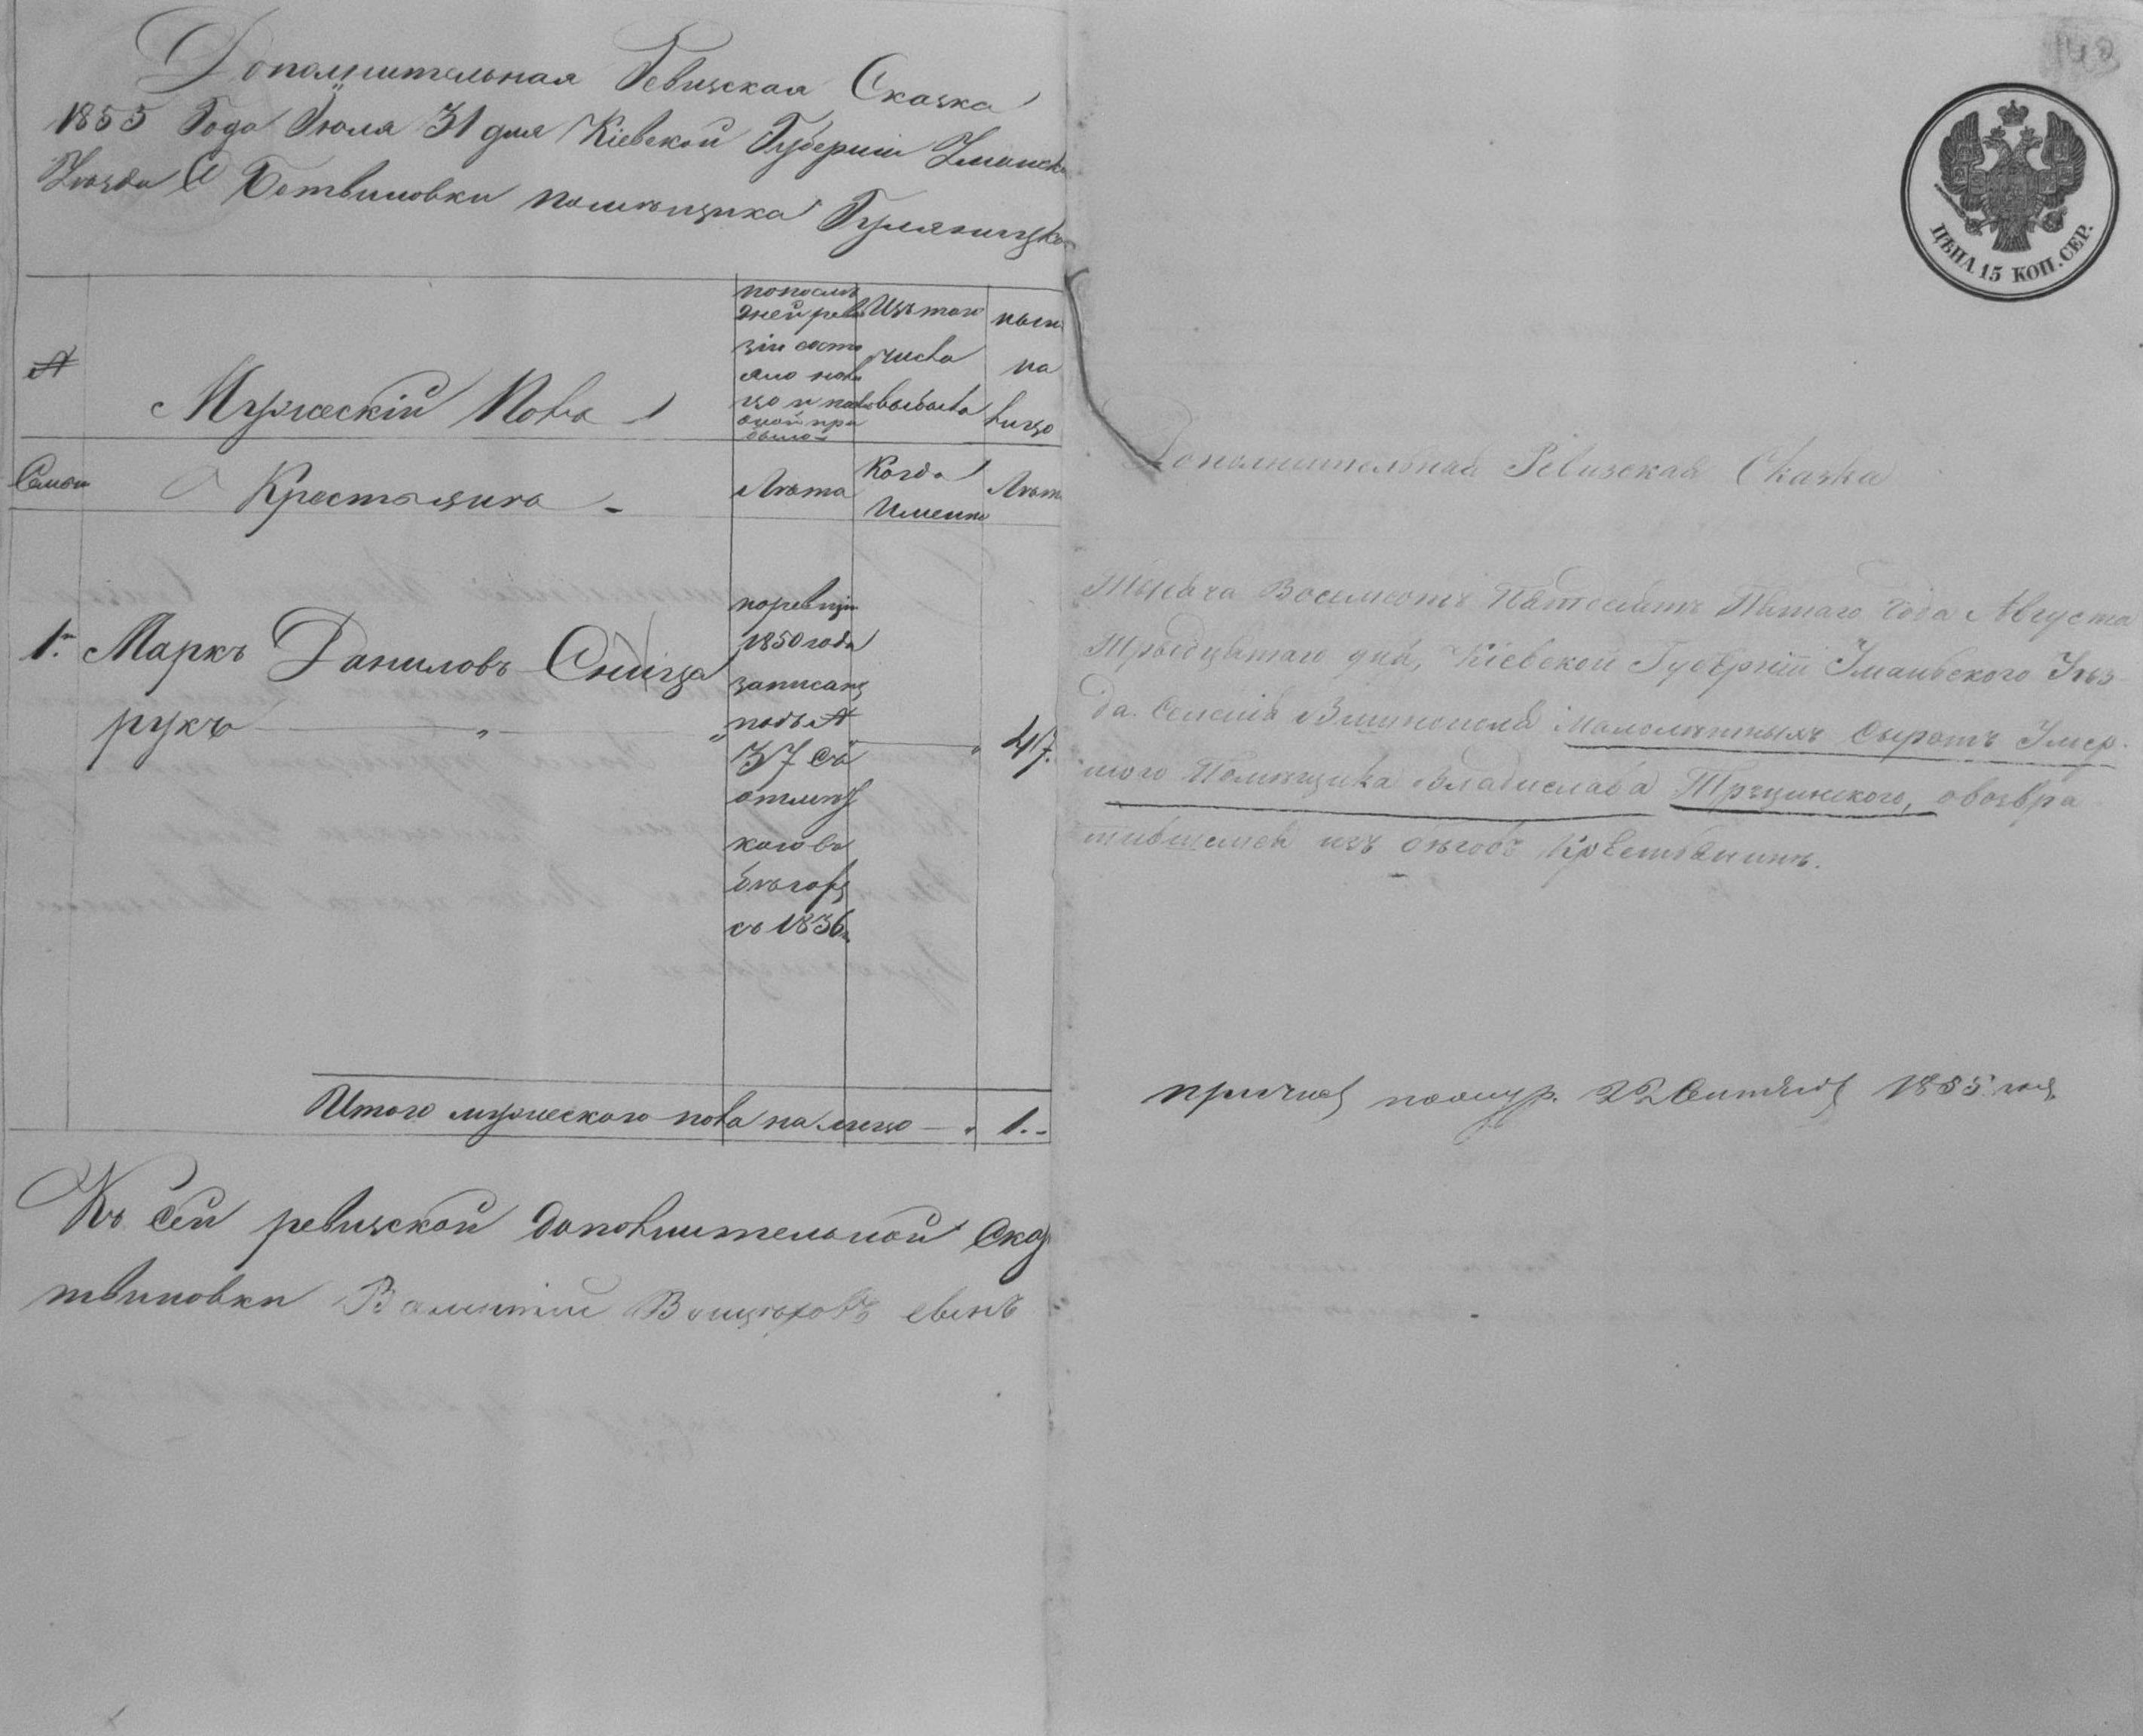 Дополнительная Ревизская Сказка
1855 Года Июля 31 дня Кіевской Губерніи Уманск
Уѣзда С Ботвиновки помѣщика Гуляницко
№
Мужескій Полъ
по послѣ
дней реви
зіи состо
яло
было
Изъ того
числа
выбыло
нынѣ
на
лицо
Семьи
Крестьянъ
Лѣта
Когда
Именно
Лѣта
1. Маркъ Даниловъ
рукъ
по ревизіи
1850 года
записанъ
подъ №
37 съ
отмѣт
кою въ
бѣгахъ
съ 1836
47.
Итого мужескаго пола на лицо 1.
Къ сей ревизской дополнительной Сказ
твиновки
143
ЦѢНА 15 КОП. СЕР.
Дополнительная Ревизская Сказка
Тысяча Восемсотъ Пятдесятъ Пятаго года Августа
Тридцятаго дня, Кіевской Губерніи Уманьского Уѣз-
да. Селенія Малолѣтныхъ Сыротъ Умер-
шого Помѣщика Владислава Тржцинского, о возвра
тившемся изъ бѣговъ Крестьянинѣ.
22 Сентября 1855 года